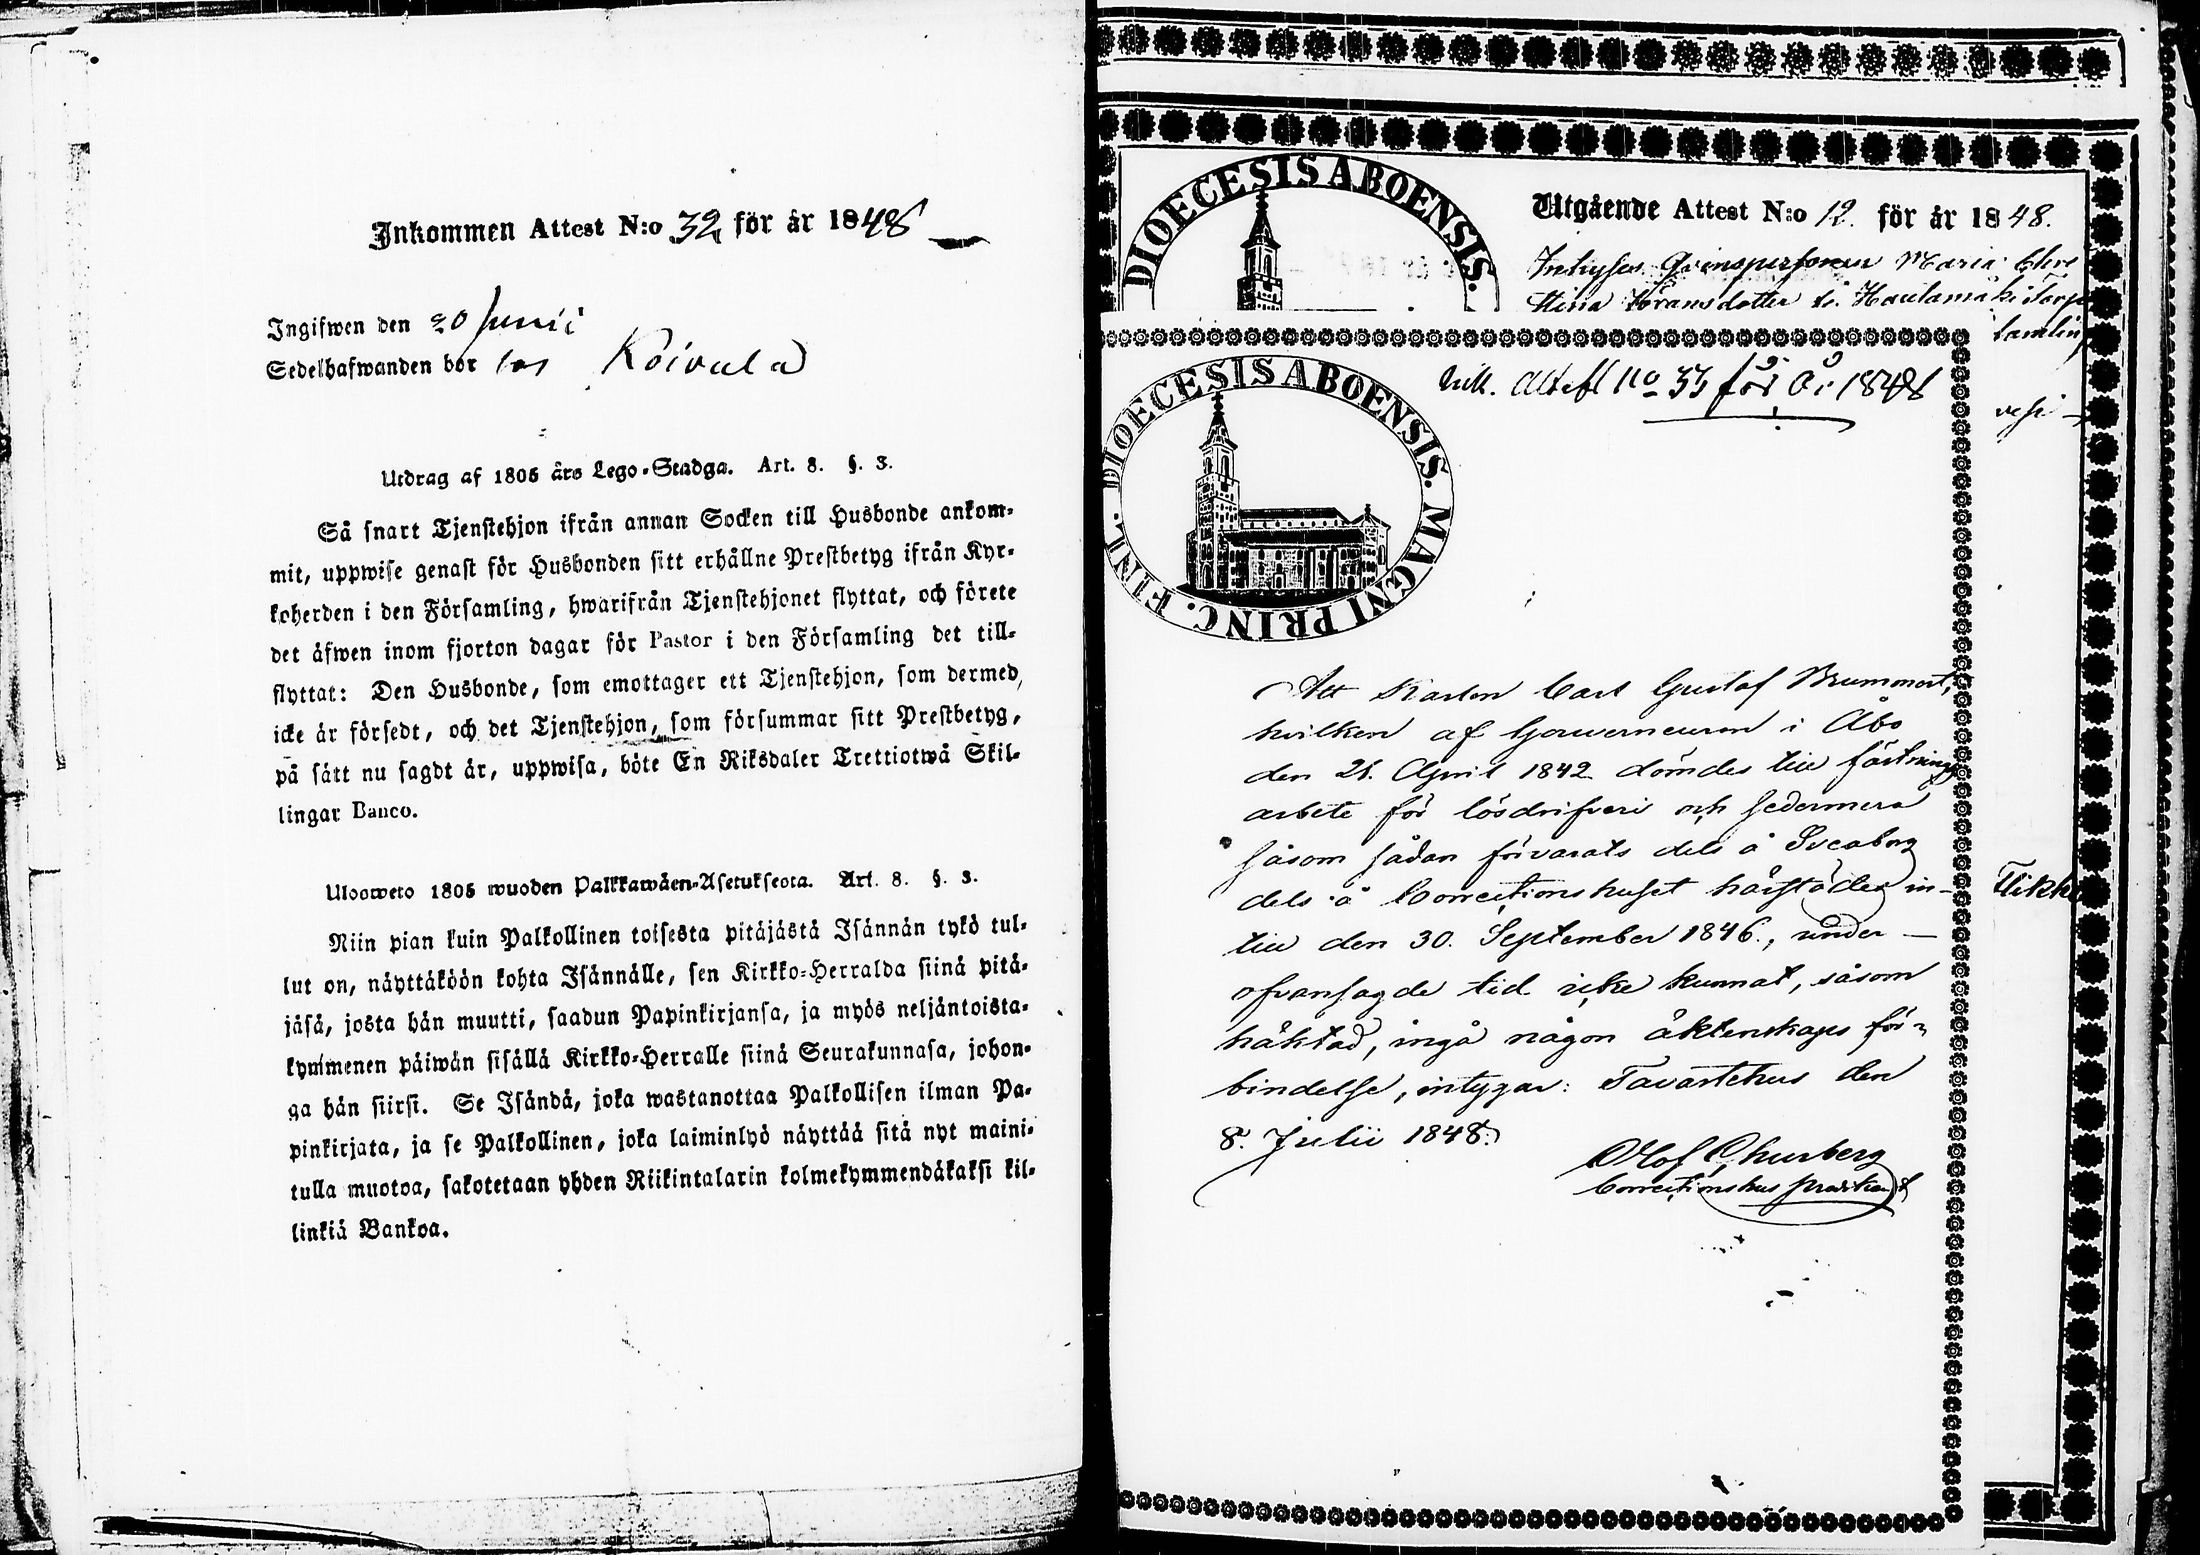 Inkommen Attest N:o 32 för år 1848
Ingifwen den 20 Junii
Sedelhafwanden bor hos Koivula
Utdrag af 1805 års Lego-Stadga. Art. 8. §. 3.
Så snart Tjenstehjon ifrån annan Socken till Husbonde ankom-
mit, uppwise genast för Husbonden sitt erhållne Prestbetyg ifrån Kyr-
koherden i den Församling, hwarifrån Tjenstehjonet flyttat, och förete
det äfwen inom fjorton dagar för Pastor i den Församling det till-
flyttat: Den Husbonde, som emottager ett Tjenstehjon, som dermed
icke är försedt, och det Tjenstehjon, som försummar sitt Prestbetyg,
på sätt nu sagdt är, uppwisa, böte En Riksdaler Trettiotwå Skil-
lingar Banco.
Uloosweto 1805 wuoden Palkkawäen-Asetuksesta. Art. 8. §. 3.
Niin pian kuin Palkollinen toisesta pitäjästä Isännän tykö tul-
lut on, näyttäköön kohta Isännälle, sen Kirkko-Herralda siinä pitä-
jäsä, josta hän muutti, saadun Papinkirjansa, ja myös neljäntoista-
kymmenen päiwän sisällä Kirkko-Herralle siinä Seurakunnasa, johon-
ga hän siirsi. Se Isändä, joka wastanottaa Palkollisen ilman Pa-
pinkirjata, ja se Palkollinen, joka laiminlyö näyttää sitä nyt maini-
tulla muotoa, sakotetaan yhden Riikintalarin kolmekymmendäkaksi kil-
linkiä Bankoa.
DIOECESIS ABOENSIS.
Utgående Attest N:o 12. för år 1848.
Qvinspersonen Maria
Stina Göransdotter Hautamäki Torp
samling
vesi
Flikka
Ink. Attest No 33 för år 1848
DIOECESIS ABOENSIS. MAGNI PRINC. FINL.
Att Karlen Carl Gustaf Brummert,
hvilken af Gouverneuren i Åbo
den 21. April 1842 dömdes till fästnings
arbete för lösdrifveri och sedermera
såsom sådan förvarats dels å Sveaborg
dels å Correctionshuset härstädes in-
till den 30. September 1846., under
ofvansagde tid icke kunnat, såsom
häktad, ingå någon äktenskaps för-
bindelse, intygar: Tavastehus den
8. Julii 1848.
Olof Churberg
Correctionshus predikant